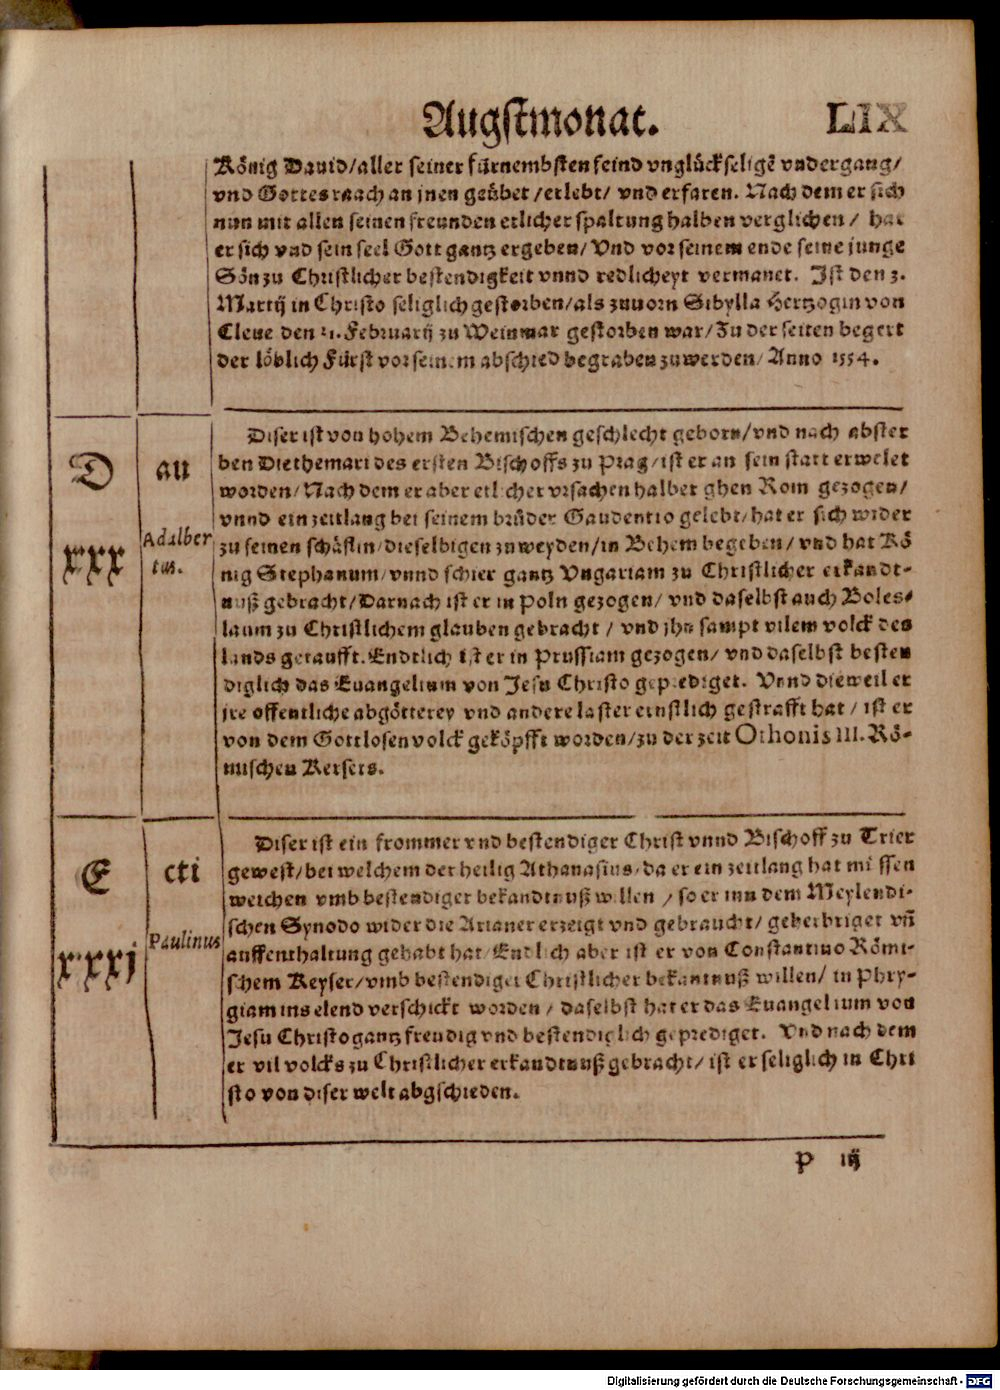 Augstmonat. LIX
König Dauid/aller seiner fürnembsten feind vnglückseligē vndergang/
vnd Gottes raach an jnen geübet/erlebt/ vnd erfaren. Nach dem er sich
nun mit allen seinen freunden etlicher spaltung halben verglichen/ hat
er sich vnd sein seel Gott gantz ergeben/ Vnd vor seinem ende seine junge
Sön zu Christlicher bestendigkeit vnnd redlicheyt vermanet. Ist den 3.
Martij in Christo seliglich gestorben/als zuuorn Sibylla Hertzogin von
Cleue den 21. Februarij zu Weinmar gestorben war/Zu der seiten begert
der löblich Fürst vor seinem abschied begraben zuwerden/ Anno 1554.
D
au
xxx
Adalber
tus.
Diser ist von hohem Behemischen geschlecht geborn/vnd nach abster
ben Diethemari des ersten Bischoffs zu Prag/ist er an sein statt erwelet
worden/Nach dem er aber etlicher vrsachen halber ghen Rom gezogen/
vnnd ein zeitlang bei seinem brüder Gaudentio gelebt/hat er sich wider
zu seinen schäflin/dieselbigen zuweyden/in Behem begeben/ vnd hat Kö
nig Stephanum/vnnd schier gantz Vngariam zu Christlicher erkandt-
nuß gebracht/Darnach ist er in Poln gezogen/ vnd daselbst auch Boles-
laum zu Christlichem glauben gebracht/ vnd jhn sampt vilem volck des
lands getaufft. Endtlich ist er in Prussiam gezogen/ vnd daselbst besten
diglich das Euangelium von Jesu Christo geprediget. Vnnd dieweil er
jre offentliche abgötterey vnd andere laster ernstlich gestrafft hat/ ist er
von dem Gottlosen volck geköpfft worden/zu der zeit Othonis III. Rö-
mischen Keisers.
E
cti
xxxj
Paulinus
Diser ist ein frommer vnd bestendiger Christ vnnd Bischoff zu Trier
gewest/bei welchem der heilig Athanasius/da er ein zeitlang hat müssen
weichen vmb bestendiger bekandtnuß willen/ so er inn dem Meylendi-
schen Synodo wider die Arianer erzeigt vnd gebraucht/ geherbriget vñ
auffenthaltung gehabt hat/Endlich aber ist er von Constantino Römi-
schem Keyser/vmb bestendiger Christlicher bekantnuß willen/ in Phry-
giam ins elend verschickt worden/ daselbst hat er das Euangelium von
Jesu Christo gantz freudig vnd bestendiglich geprediget. Vnd nach dem
er vil volcks zu Christlicher erkandtnuß gebracht/ ist er seliglich in Chri
sto von diser welt abgschieden.
P iij
Digitalisierung gefördert durch die Deutsche Forschungsgemeinschaft - DFG